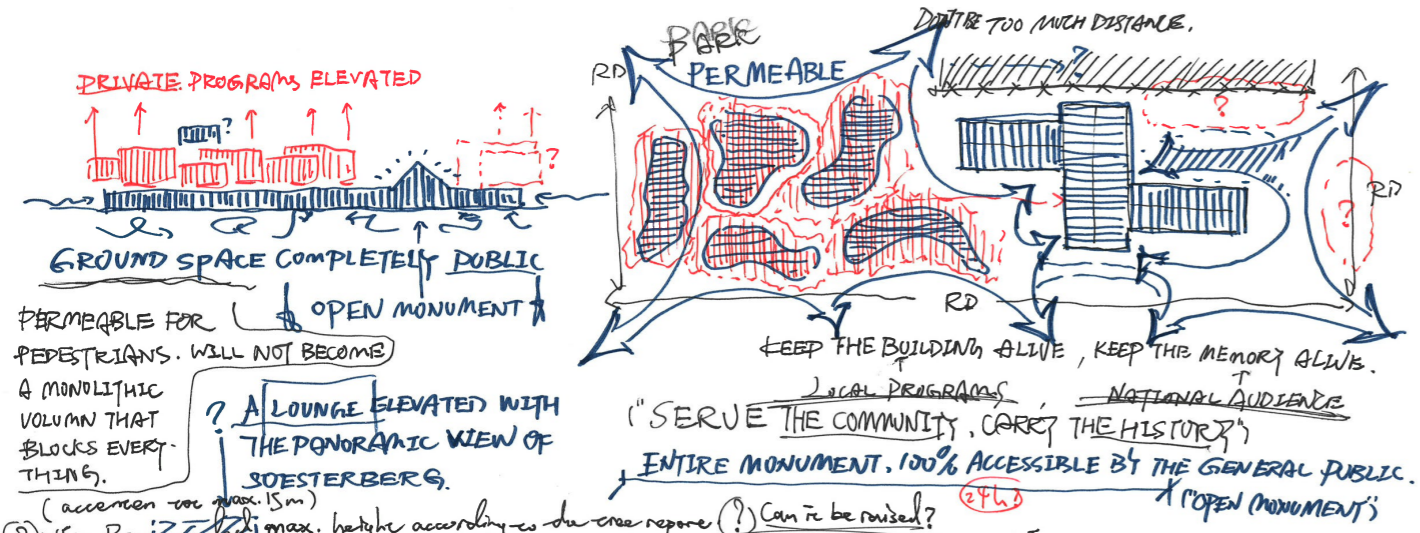 PRIVATE PROGRAMS ELEVATED
?
?
GROUND SPACE COMPLETELY PUBLIC
OPEN MONUMENT
PERMEABLE FOR
PEDESTRIANS. WILL NOT BECOME
A MONOLITHIC
VOLUMN THAT
BLOCKS EVERY-
THING.
? A LOUNGE ELEVATED WITH
THE PANORAMIC VIEW OF
SOESTERBERG.
max. 15m)
max. height according to
(?) Can it be raised?
PARK
PERMEABLE
RD
DON'T BE TOO MUCH DISTANCE.
?
?
?
RD
RD
KEEP THE BUILDING ALIVE, KEEP THE MEMORY ALIVE.
LOCAL PROGRAMS, NATIONAL AUDIENCE
("SERVE THE COMMUNITY, CARRY THE HISTORY")
ENTIRE MONUMENT, 100% ACCESSIBLE BY THE GENERAL PUBLIC.
24h!
("OPEN MONUMENT")